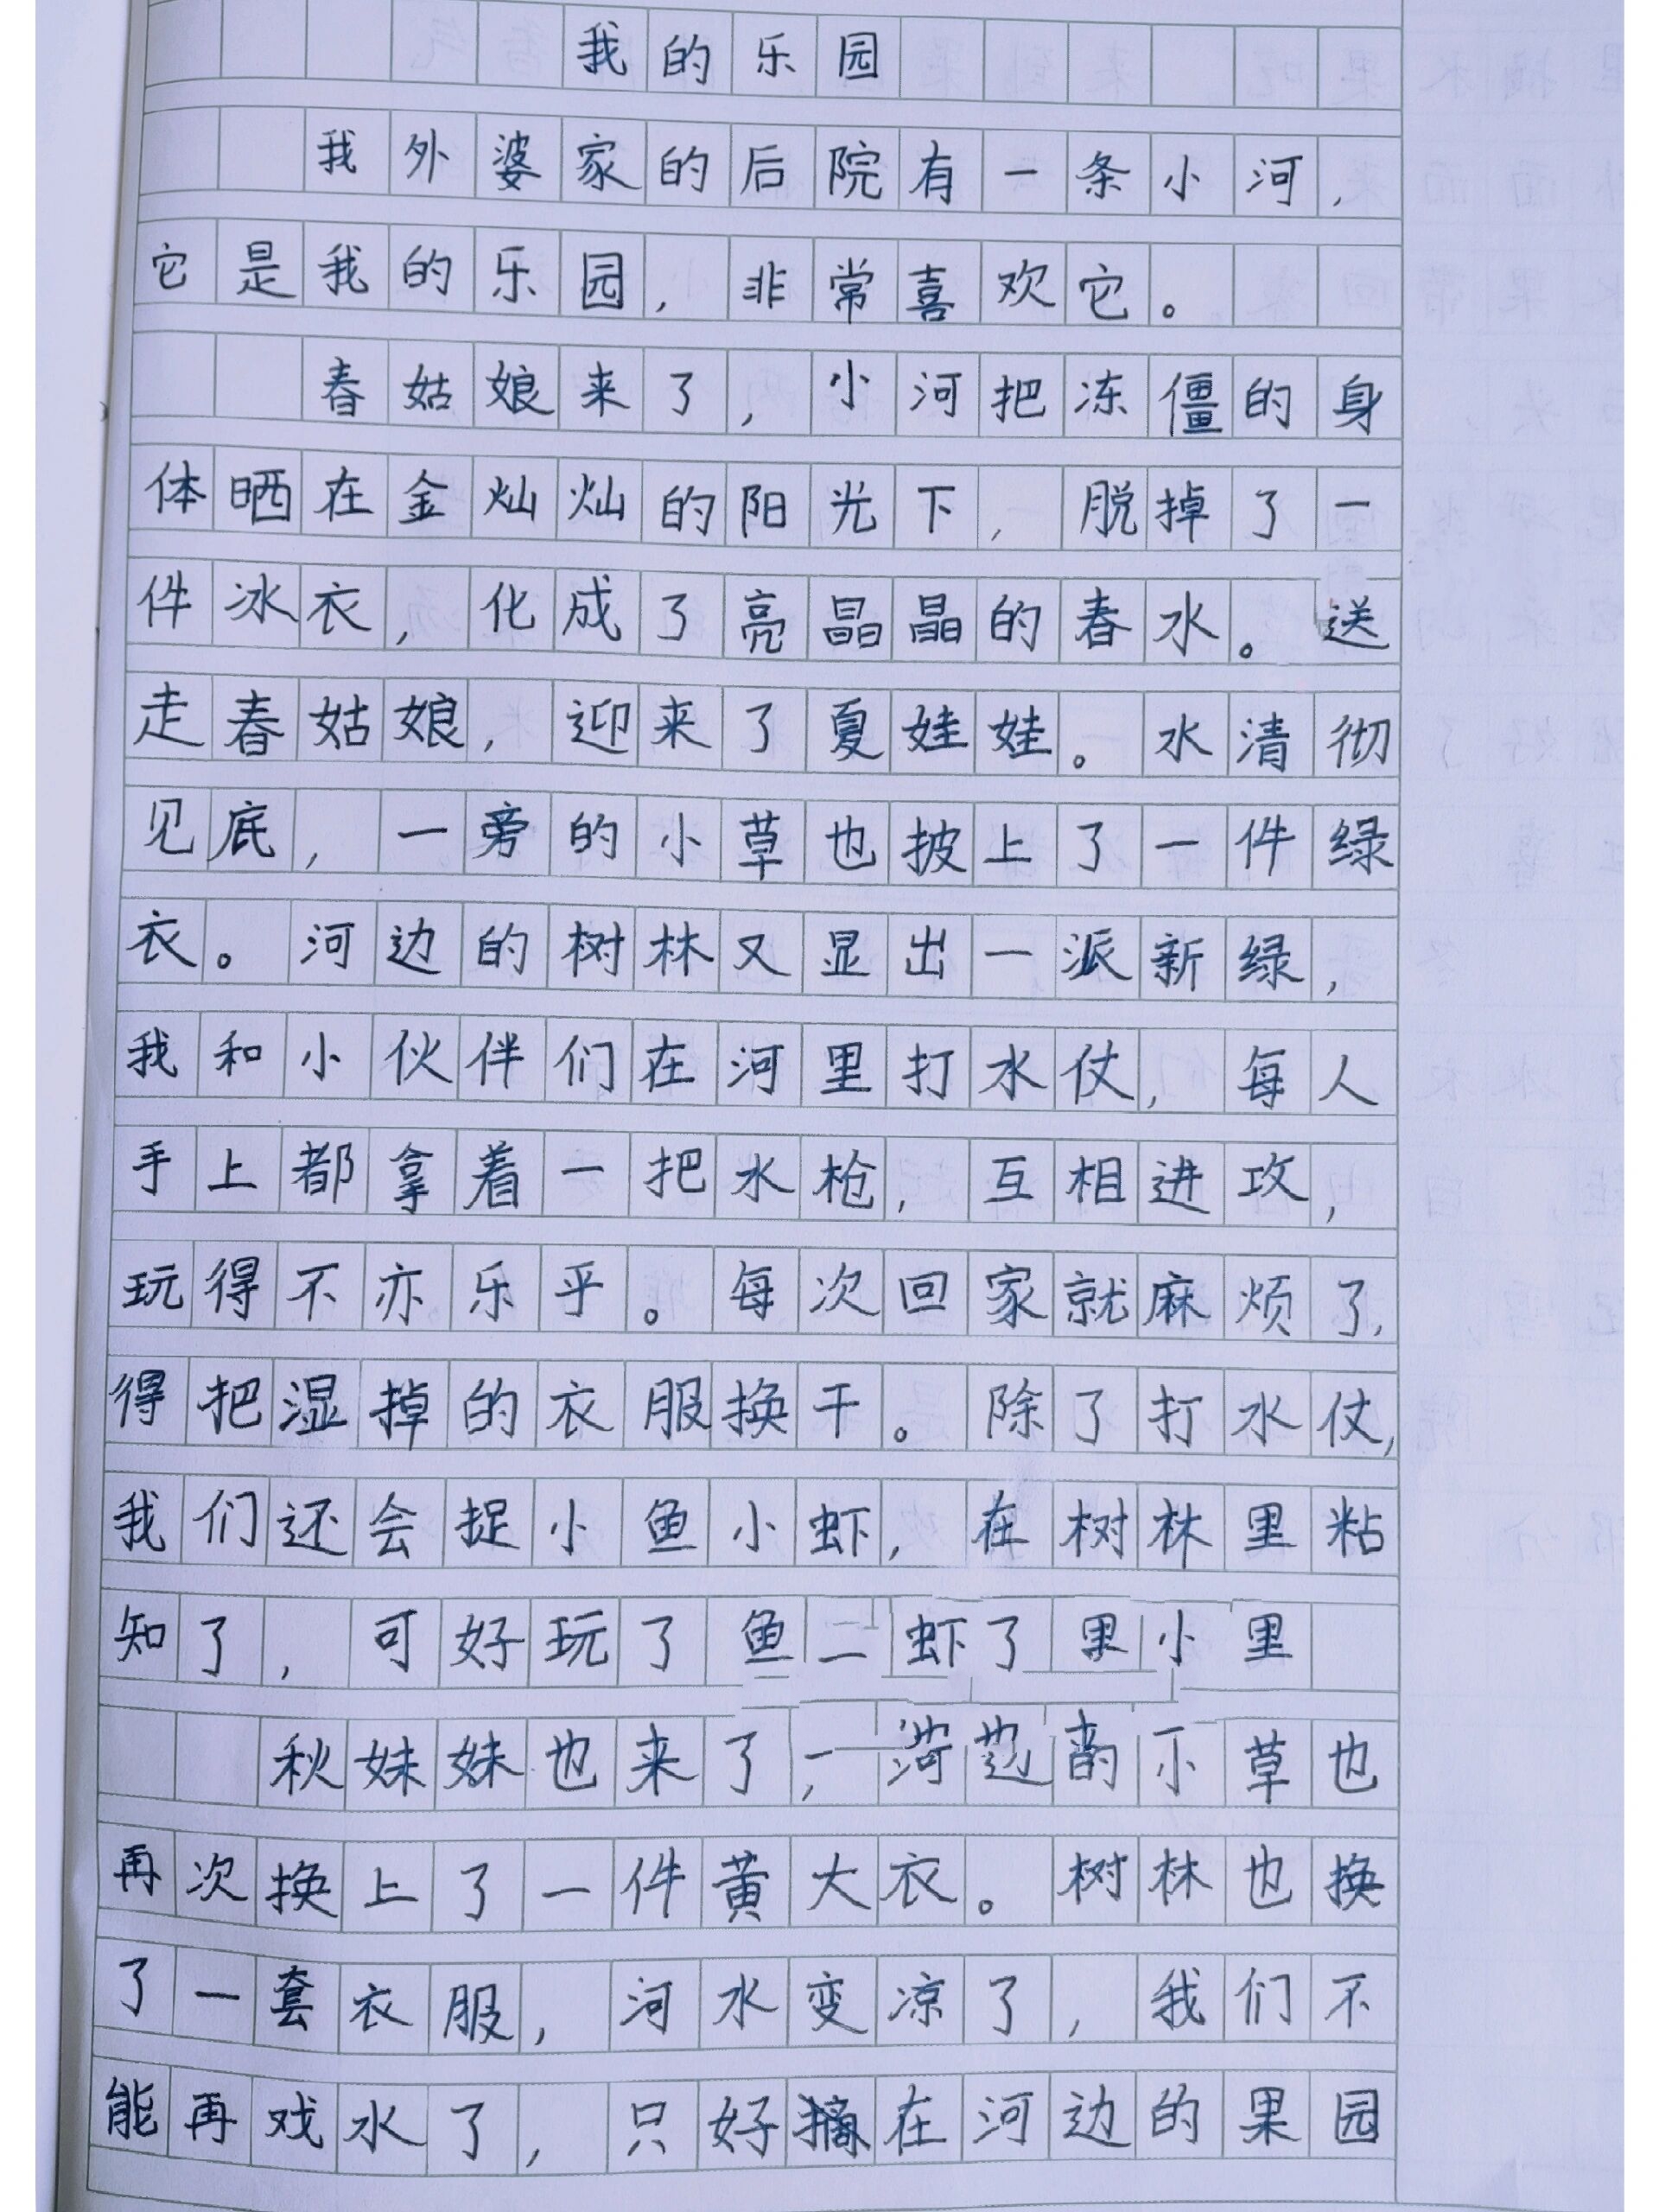 我的乐园
我外婆家的后院有一条小河，
它是我的乐园，非常喜欢它。
春姑娘来了，小河把冻僵的身
体晒在金灿灿的阳光下，脱掉了一
件冰衣，化成了亮晶晶的春水。送
走春姑娘，迎来了夏娃娃。水清彻
见底，一旁的小草也披上了一件绿
衣。河边的树林又显出一派新绿，
我和小伙伴们在河里打水仗，每人
手上都拿着一把水枪，互相进攻，
玩得不亦乐乎。每次回家就麻烦了，
得把湿掉的衣服换干。除了打水仗，
我们还会捉小鱼小虾，在树林里粘
知了，可好玩了鱼二虾了果小里
秋妹妹也来了，河边的小草也
再次换上了一件黄大衣。树林也换
了一套衣服，河水变凉了，我们不
能再戏水了，只好摘在河边的果园